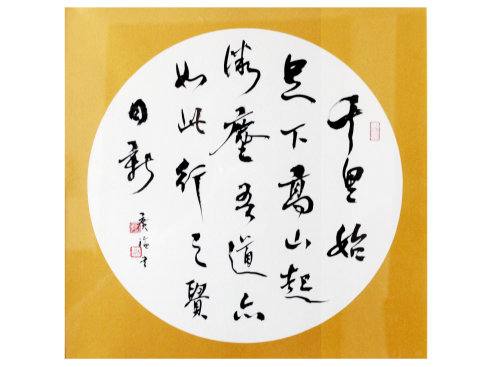 千里始
足下高山起
微塵吾道亦
如此行之貴
日新